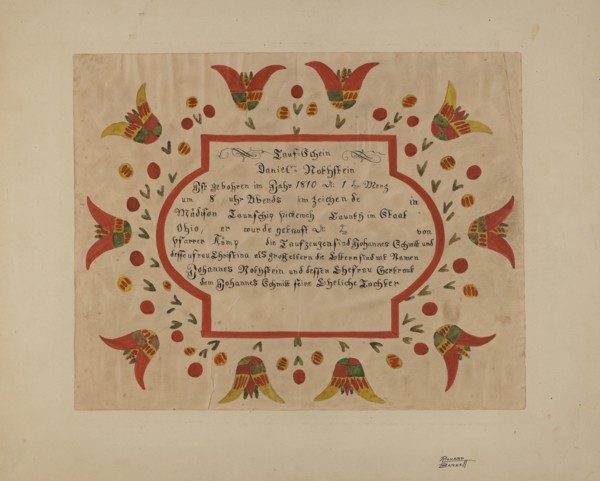 Tauf-Schein
Daniel Rothstein
Ist gebohren im Jahr 1810 1 Merz
um 8 uhr Abends im zeichen de in
Mädisan Taunschip pickewch Caunth im Staat
Ohio, er wurde getauft von
Pfarrer Kämp die Taufzeugen sind Johannes Schmitt und
Christina als großeltern die Eltern sind mit Namen
Johannes Rothstein und dessen Ehefrau
dem Johannes Schmitt seine Eheliche Tochter